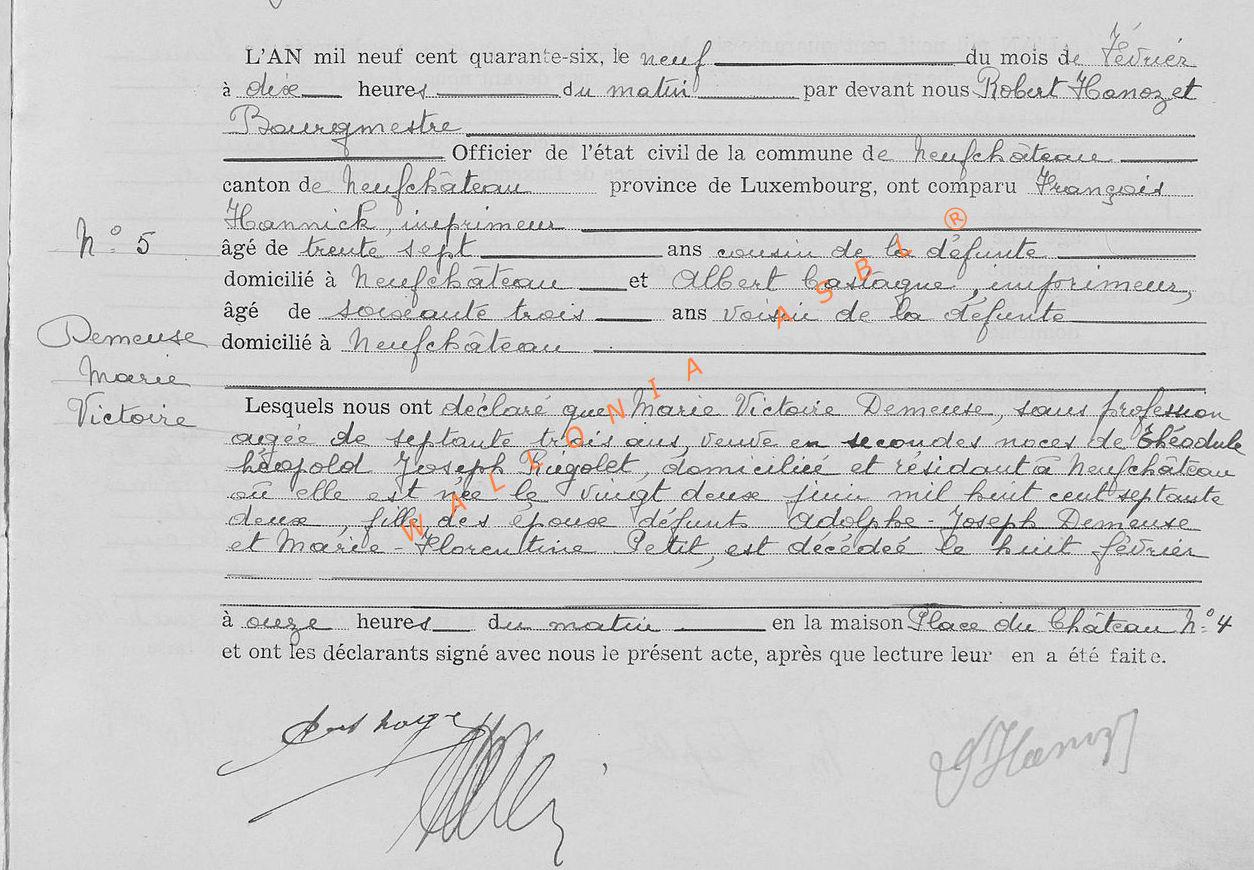 L'AN mil neuf cent quarante-six, le neuf du mois de Février
à dix heures du matin par devant nous Robert Hanozet
Bourgmestre
Officier de l'état civil de la commune de Neufchâteau
canton de Neufchâteau province de Luxembourg, ont comparu François
Hannick, imprimeur
N° 5
âgé de trente sept ans cousin de la défunte
domicilié à Neufchâteau et Albert Castagne, imprimeur,
âgé de soixante trois ans voisin de la défunte
Demeuse
domicilié à Neufchâteau
Marie
Victoire
Lesquels nous ont déclaré que Marie Victoire Demeuse, sans profession
agée de septante trois ans, veuve en secondes noces de Théodule
Léopold Joseph Rigolet, domiciliée et résidant à Neufchâteau
où elle est née le vingt deux juin mil huit cent septante
deux, fille des époux défunts Adolphe-Joseph Demeuse
et Marie-Florentine Petit, est décédée le huit février
à onze heures du matin en la maison Place du Château N° 4
et ont les déclarants signé avec nous le présent acte, après que lecture leur en a été faite.
WALLONIA ASBL ®